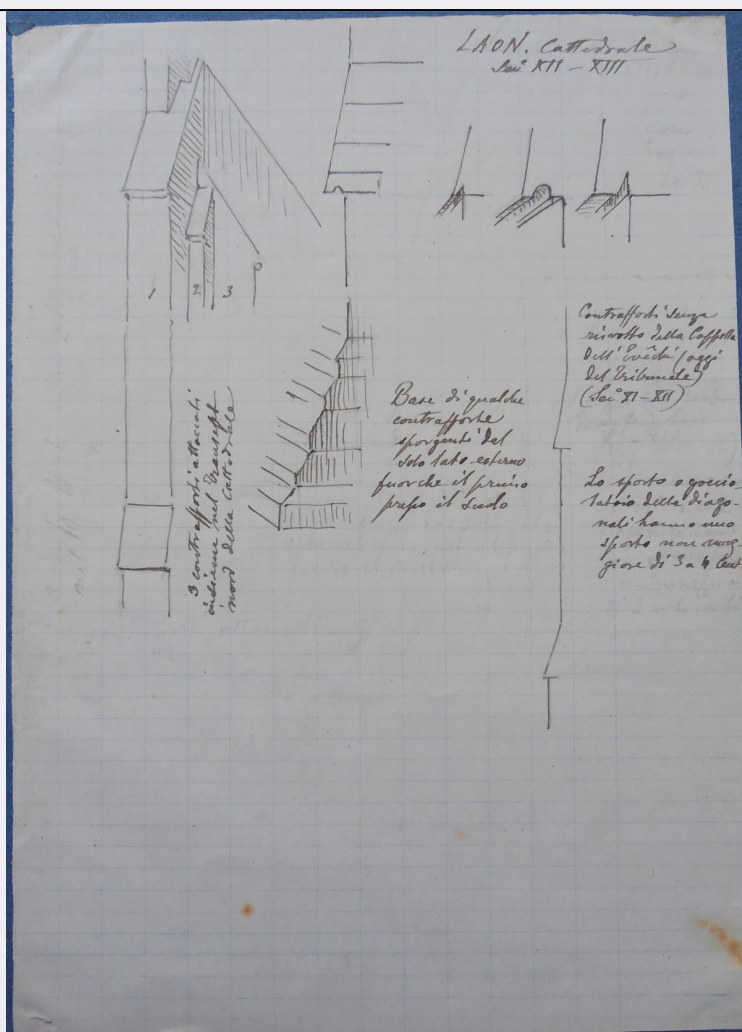 LAON. Cattedrale
Sec.i XII – XIII
1 2 3
3 contrafforti attaccati
insieme nel transept
nord della Cattedrale
Base di qualche
contrafforte
sporgenti dal
solo lato esterno
fuorchè il primo
presso il suolo
Contrafforti senza
risvolto della Cappella
dell'Évêché (oggi
del Tribunale)
(Sec.i XI – XII)
Lo sporto o goccio-
latoio delle diago-
nali hanno uno
sporto non mag-
giore di 3 a 4 Cent